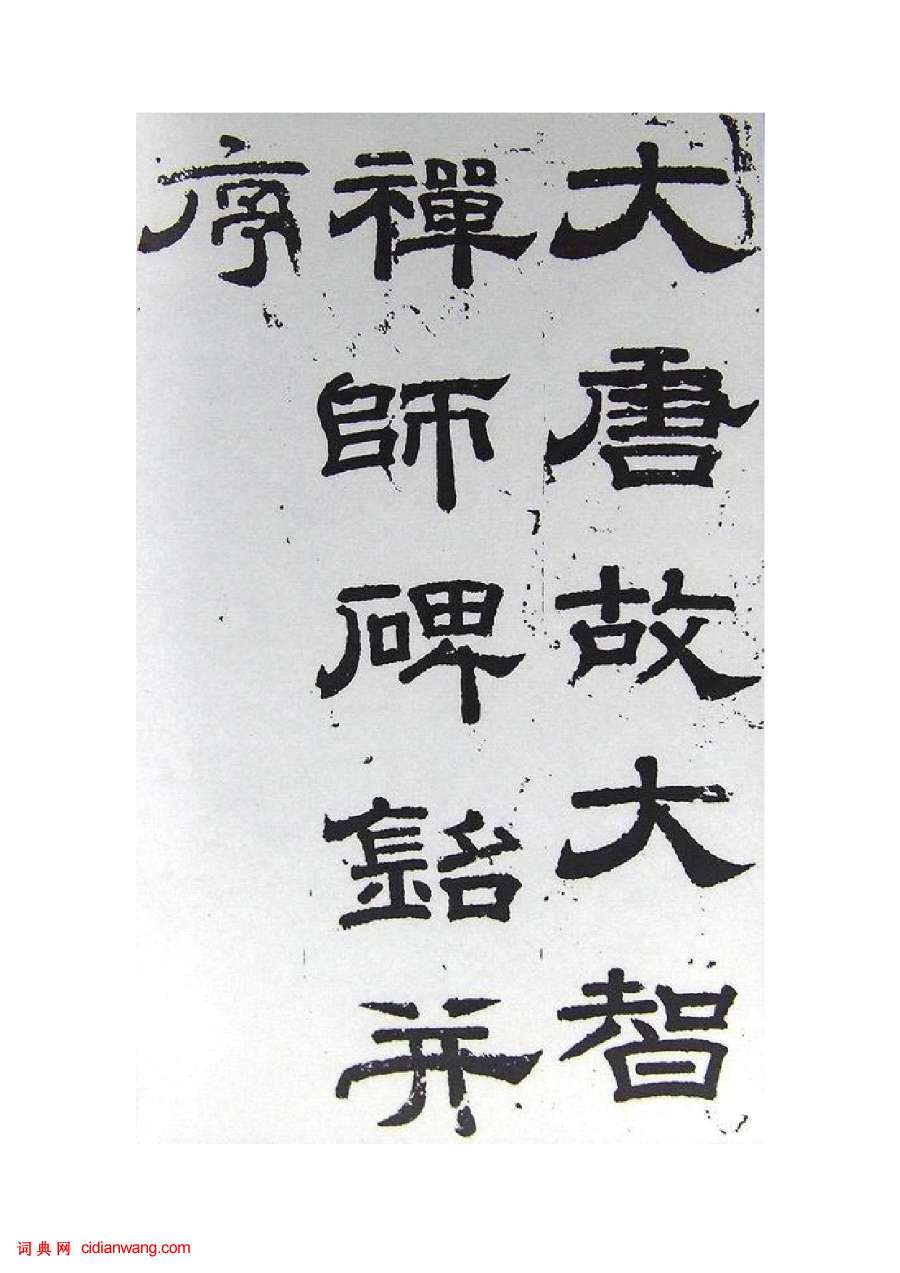 大唐故大智
禪師碑銘并
序
词典网 cidianwang.com